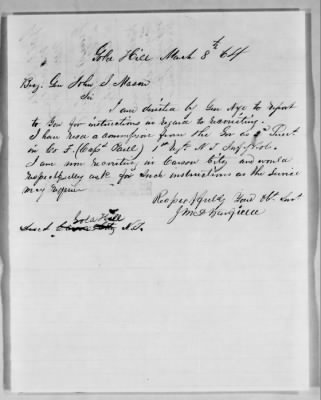 Gold Hill March 8th 64
Brig. Gen John S Mason
Sir
I am directed by Gov Nye to report
to You for instructions in regard to recruiting.
I have rec'd a commission from the Gov as 2d Lieut
in Co F. (Capt Hall) 1st Regt N T Inf. Vols.
I am now recruiting in Carson City and would
respectfully ask for such instructions as the service
may require
Respectfully Your Obt. Servt
J McD
Gold Hill
Direct Carson City N.T.